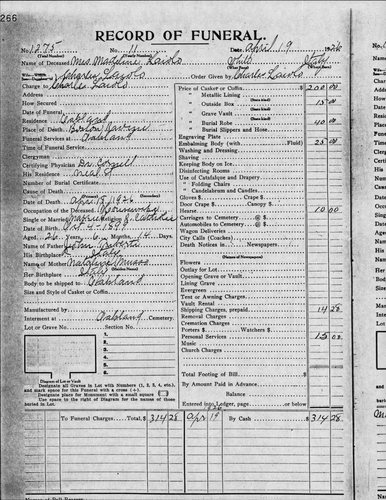 266
RECORD OF FUNERAL.
No. 1275 No. 11 Date, April 19 1926
(Total Number) (Yearly Number)
Name of Deceased Mrs Madeline White Italy
Charles
Charge to Charles Order Given by Charles
How Secured
Date of Funeral
Residence Oakland
Place of Death Boston Ravine
Funeral Services at Oakland
Time of Funeral Services
Clergyman
Certifying Physician Dr.
His Residence Neal St
Number of Burial Certificate
Cause of Death
Date of Death April 18, 1926
Occupation of the Deceased Housewife
Single or Married Married Religion Catholic
Date of Birth Oct 4 - 1899
Aged 26 Years 6 Months 14 Days
Name of Father John
His Birthplace Italy
Name of Mother Madeline
(Maiden Name)
Her Birthplace Italy
Body to be shipped to Oakland
Size and Style of Casket or Coffin
Manufactured by
Interment at Oakland Cemetery.
Lot or Grave No. Section No.
Diagram of Lot or Vault
Designate all Graves in Lot with Numbers (1, 2, 3, 4, etc.), and mark space for this Funeral with a cross (+).
Designate place for Monument with a small square
Use space to the right of Diagram for the names of those buried in Lot.
Price of Casket or Coffin $ 200 00
" Metallic Lining
" Outside Box 15 00
" Grave Vault
" Burial Robe 40 00
" Burial Slippers and Hose
Engraving Plate
Embalming Body (with Fluid) 25 00
Washing and Dressing
Shaving
Keeping Body on Ice
Disinfecting Rooms
Use of Catafalque and Drapery
" Folding Chairs
" Candelabrum and Candles
Gloves $ Crape $
Door Crape $ Canopy $
Hearse 10 00
Carriages to Cemetery @ $
Automobiles to Cemetery @ $
Wagon Deliveries
City Calls (Coaches)
Death Notices in Newspapers
Flowers
Outlay for Lot
Opening Grave or Vault
Lining Grave
Evergreen
Tent or Awning Charges
Vault Rental
Shipping Charges, prepaid 14 28
Removal Charges
Cremation Charges
Porters $ Watchers $
Personal Services 15 00
Music
Church Charges
Total Footing of Bill $
By Amount Paid in Advance
Balance $
Entered into Ledger, page or below
To Funeral Charges Total, $ 314 28 1926 Apr 19 By Cash $ 314 28